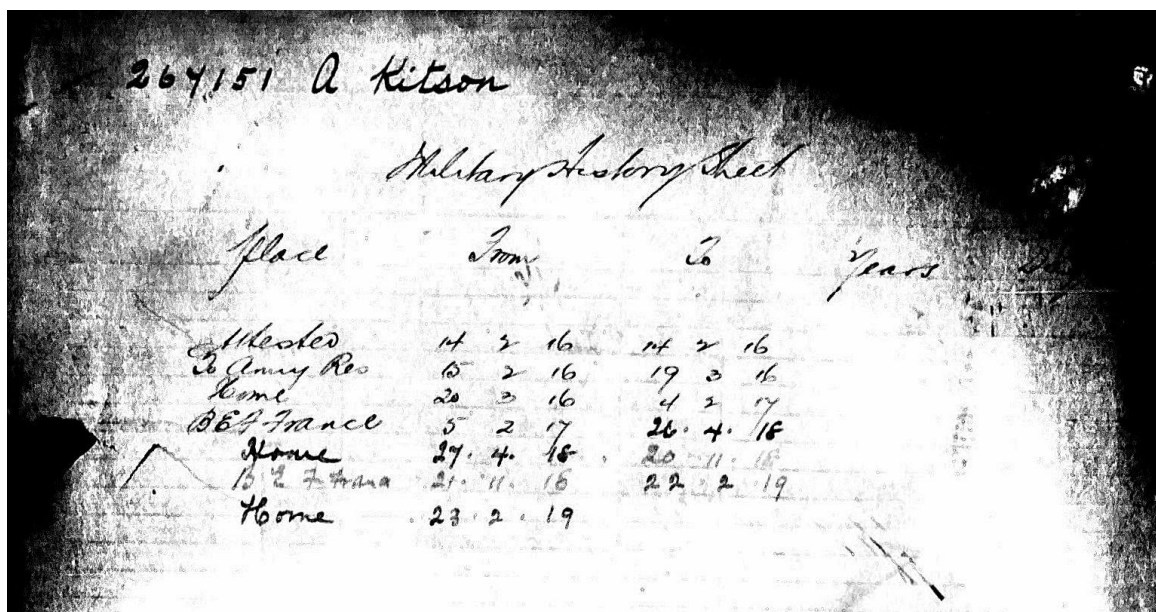 267151 A Kitson
Military History Sheet
Place From To Years
Attested 14 2 16 14 2 16
To Army Res 15 2 16 19 3 16
Home 20 3 16 4 2 17
BEF France 5 2 17 26. 4. 18
Home 27. 4. 18 20 11 18
B E F Frana 21. 11. 18 22 2 19
Home 23. 2. 19